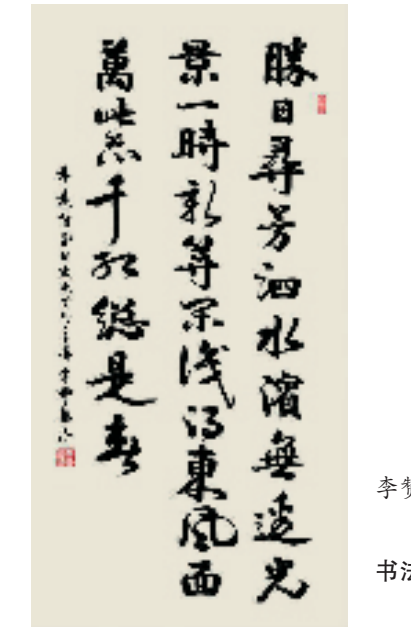 勝日尋芳泗水濱無邊光
景一時新等閑識得東風面
萬紫千紅總是春
李
书法